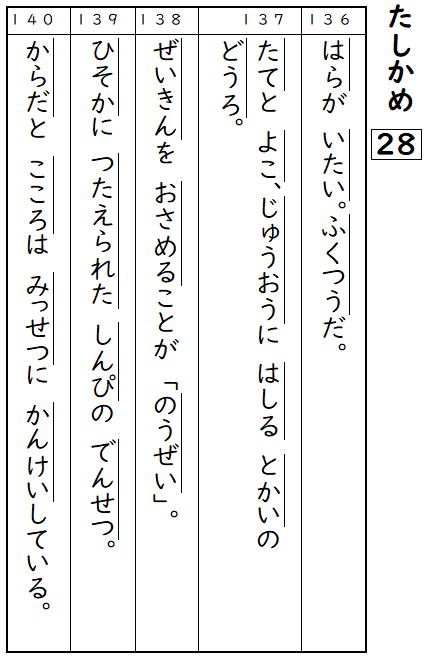 たしかめ 28
136
はらが いたい。ふくつうだ。
137
たてと よこ、じゅうおうに はしる とかいの
どうろ。
138
ぜいきんを おさめることが 「のうぜい」。
139
ひそかに つたえられた しんぴの でんせつ。
140
からだと こころは みっせつに かんけいしている。